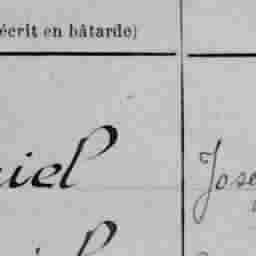 écrit en bâtarde)
iel Jose